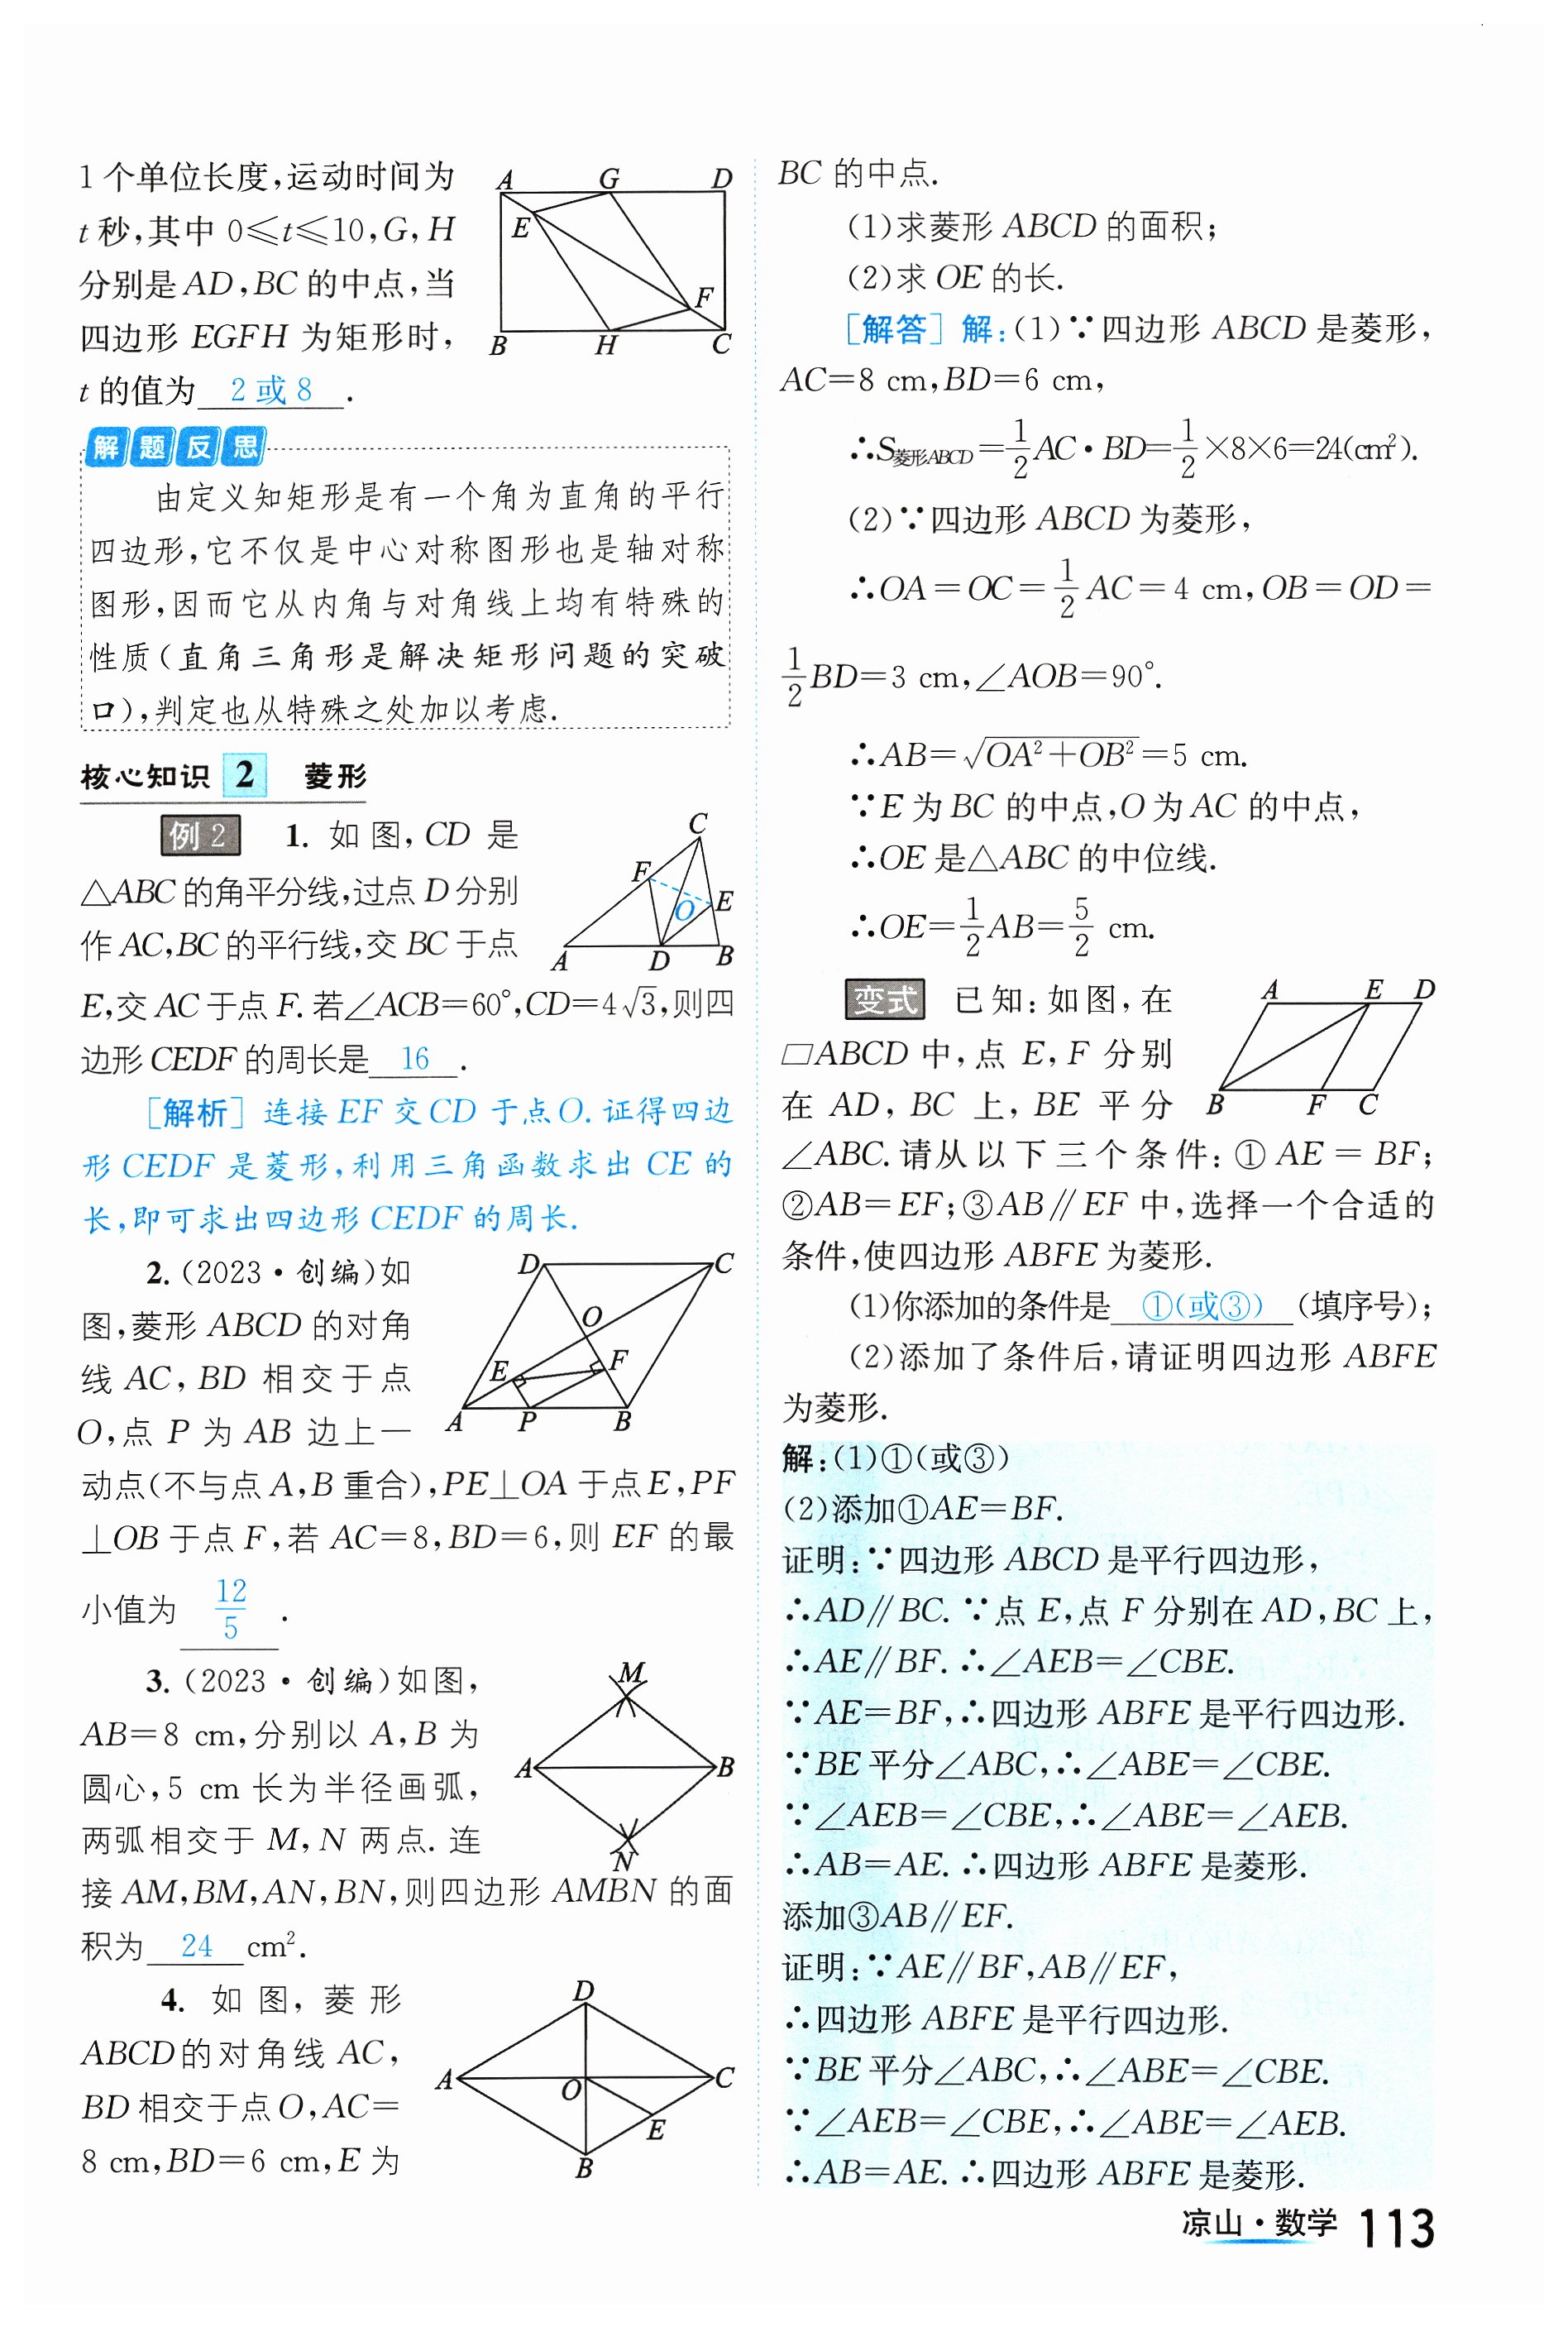 1个单位长度,运动时间为
t秒,其中 0≤t≤10,G,H
分别是AD,BC的中点,当
四边形 EGFH 为矩形时,
t的值为 2或8 .
A G D
E
F
B H C
解题反思
由定义知矩形是有一个角为直角的平行
四边形,它不仅是中心对称图形也是轴对称
图形,因而它从内角与对角线上均有特殊的
性质(直角三角形是解决矩形问题的突破
口),判定也从特殊之处加以考虑.
核心知识 2 菱形
例2 1. 如图,CD 是
△ABC的角平分线,过点D分别
作AC,BC的平行线,交BC于点
E,交AC于点F.若∠ACB=60°,CD=4√3,则四
边形CEDF的周长是 16 .
C
F
O E
A D B
[解析] 连接EF交CD于点O.证得四边
形CEDF是菱形,利用三角函数求出CE的
长,即可求出四边形CEDF的周长.
2.(2023·创编)如
图,菱形ABCD的对角
线AC,BD相交于点
O,点P为AB边上一
动点(不与点A,B重合),PE⊥OA于点E,PF
⊥OB于点F,若AC=8,BD=6,则EF的最
小值为 12/5 .
D C
O
E F
A P B
3.(2023·创编)如图,
AB=8 cm,分别以A,B为
圆心,5 cm长为半径画弧,
两弧相交于M,N两点.连
接AM,BM,AN,BN,则四边形AMBN的面
积为 24 cm².
M
A B
N
4. 如图,菱形
ABCD的对角线AC,
BD相交于点O,AC=
8 cm,BD=6 cm,E为
D
A O C
E
B
BC的中点.
(1)求菱形ABCD的面积;
(2)求OE的长.
[解答] 解:(1)∵四边形ABCD是菱形,
AC=8 cm,BD=6 cm,
∴S菱形ABCD=1/2AC·BD=1/2×8×6=24(cm²).
(2)∵四边形ABCD为菱形,
∴OA=OC=1/2AC=4 cm,OB=OD=
1/2BD=3 cm,∠AOB=90°.
∴AB=√(OA²+OB²)=5 cm.
∵E为BC的中点,O为AC的中点,
∴OE是△ABC的中位线.
∴OE=1/2AB=5/2 cm.
变式 已知:如图,在
▱ABCD中,点E,F分别
在AD,BC上,BE平分
∠ABC.请从以下三个条件:①AE=BF;
②AB=EF;③AB∥EF中,选择一个合适的
条件,使四边形ABFE为菱形.
A E D
B F C
(1)你添加的条件是 ①(或③) (填序号);
(2)添加了条件后,请证明四边形ABFE
为菱形.
解:(1)①(或③)
(2)添加①AE=BF.
证明:∵四边形ABCD是平行四边形,
∴AD∥BC.∵点E,点F分别在AD,BC上,
∴AE∥BF.∴∠AEB=∠CBE.
∵AE=BF,∴四边形ABFE是平行四边形.
∵BE平分∠ABC,∴∠ABE=∠CBE.
∵∠AEB=∠CBE,∴∠ABE=∠AEB.
∴AB=AE.∴四边形ABFE是菱形.
添加③AB∥EF.
证明:∵AE∥BF,AB∥EF,
∴四边形ABFE是平行四边形.
∵BE平分∠ABC,∴∠ABE=∠CBE.
∵∠AEB=∠CBE,∴∠ABE=∠AEB.
∴AB=AE.∴四边形ABFE是菱形.
凉山·数学 113